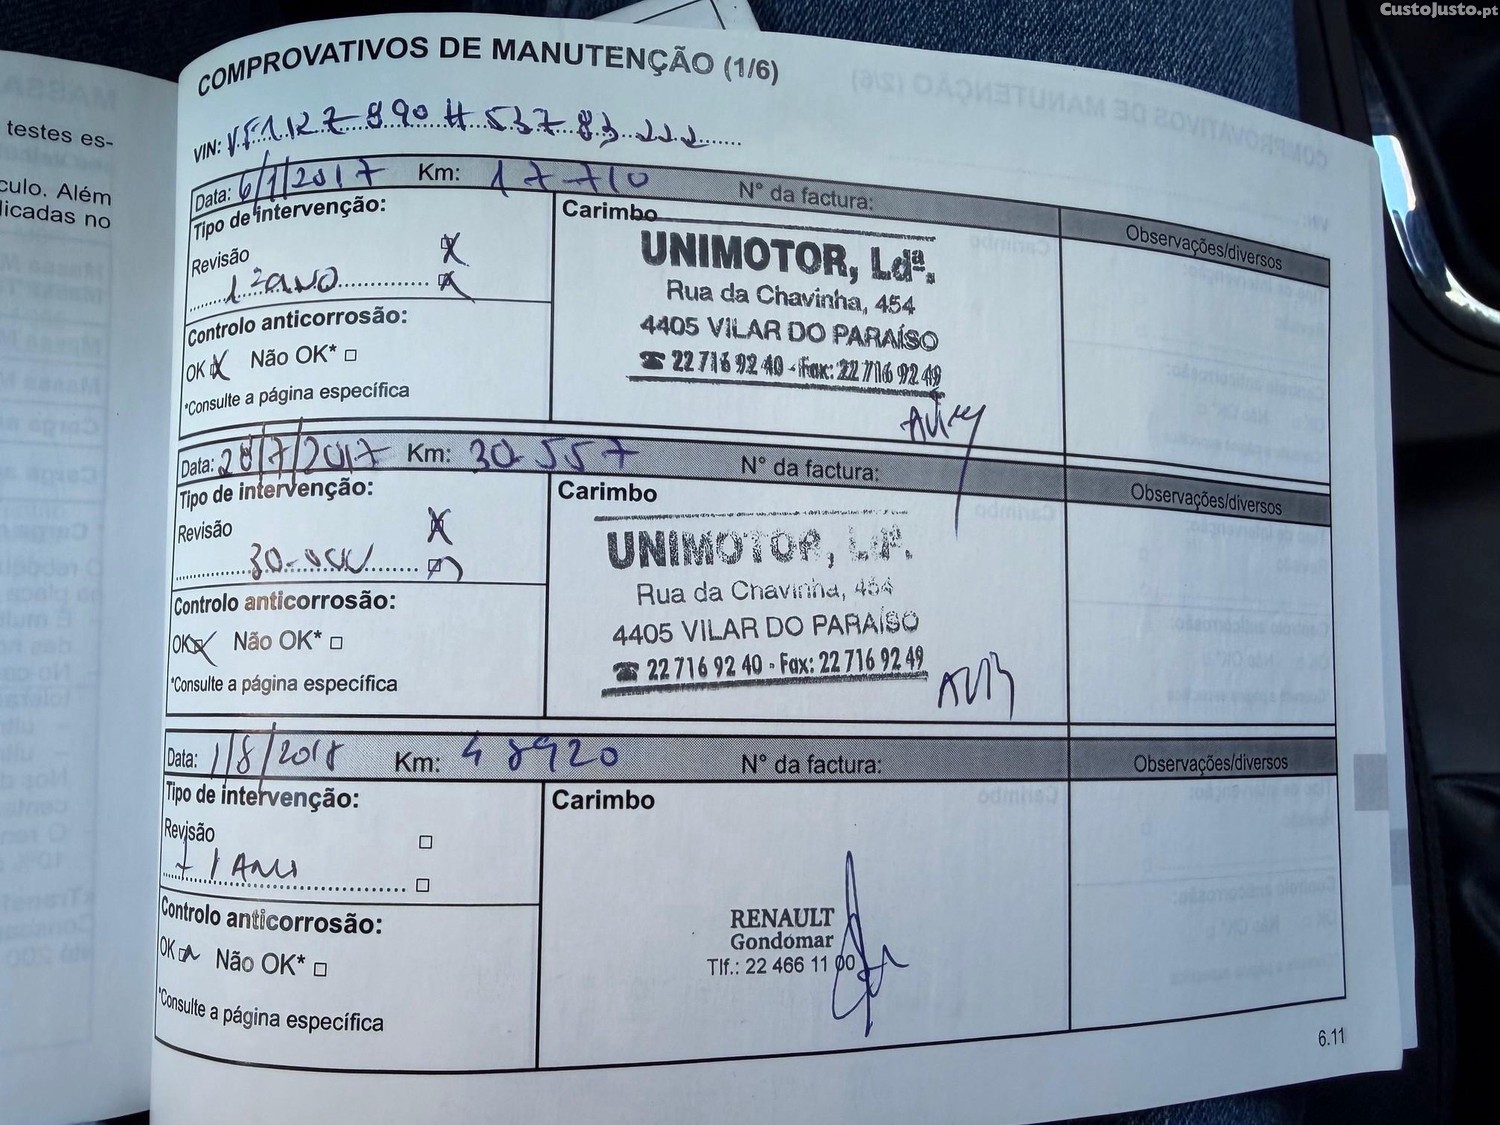 CustoJusto.pt
testes es-
culo. Além
licadas no
COMPROVATIVOS DE MANUTENÇÃO (1/6)
VIN:
Data: 6/1/2017 Km: 17710 N° da factura:
Observações/diversos
Tipo de intervenção:
Revisão
1º ANO
Controlo anticorrosão:
OK Não OK*
*Consulte a página específica
Carimbo
UNIMOTOR, Ldª.
Rua da Chavinha, 454
4405 VILAR DO PARAÍSO
☎ 22 716 92 40 - Fax: 22 716 92 49
Data: 28/7/2017 Km: 30.557 N° da factura:
Observações/diversos
Tipo de intervenção:
Revisão
30.000
Controlo anticorrosão:
OK Não OK*
*Consulte a página específica
Carimbo
UNIMOTOR, Ldª.
Rua da Chavinha, 454
4405 VILAR DO PARAÍSO
☎ 22 716 92 40 - Fax: 22 716 92 49
Data: 1/8/2018 Km: 48920 N° da factura:
Observações/diversos
Tipo de intervenção:
Revisão
Controlo anticorrosão:
OK Não OK*
*Consulte a página específica
Carimbo
RENAULT
Gondomar
Tlf.: 22 466 11 00
6.11